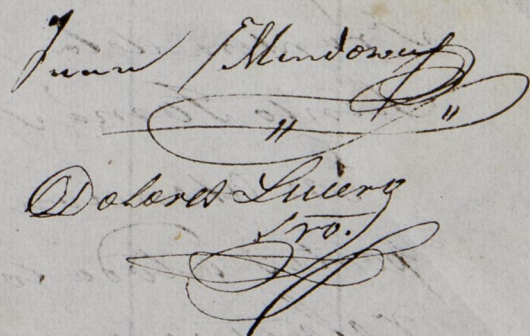 Juan Mendoza
" "
Dolores Lucero
Sro.